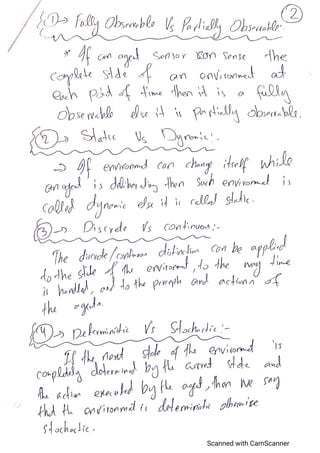 2
1 → Fully Observable Vs Partially Observable
* If an agent sensor can sense the
complete state of an environment at
each point of time then it is a fully
Observable else it is partially observable.
2 → Static Vs Dynamic :-
→ If environment can change itself while
an agent is deliberating then such environment is
called dynamic else it is called static.
3 → Discrete Vs continuous :-
The discrete/continuous distinction can be applied
to the state of the environment, to the way time
is handled, and to the percepts and actions of
the agent.
4 → Deterministic Vs Stochastic :-
If the next state of the environment is
completely determined by the current state and
the action executed by the agent, then we say
that the environment is deterministic otherwise
stochastic.
Scanned with CamScanner